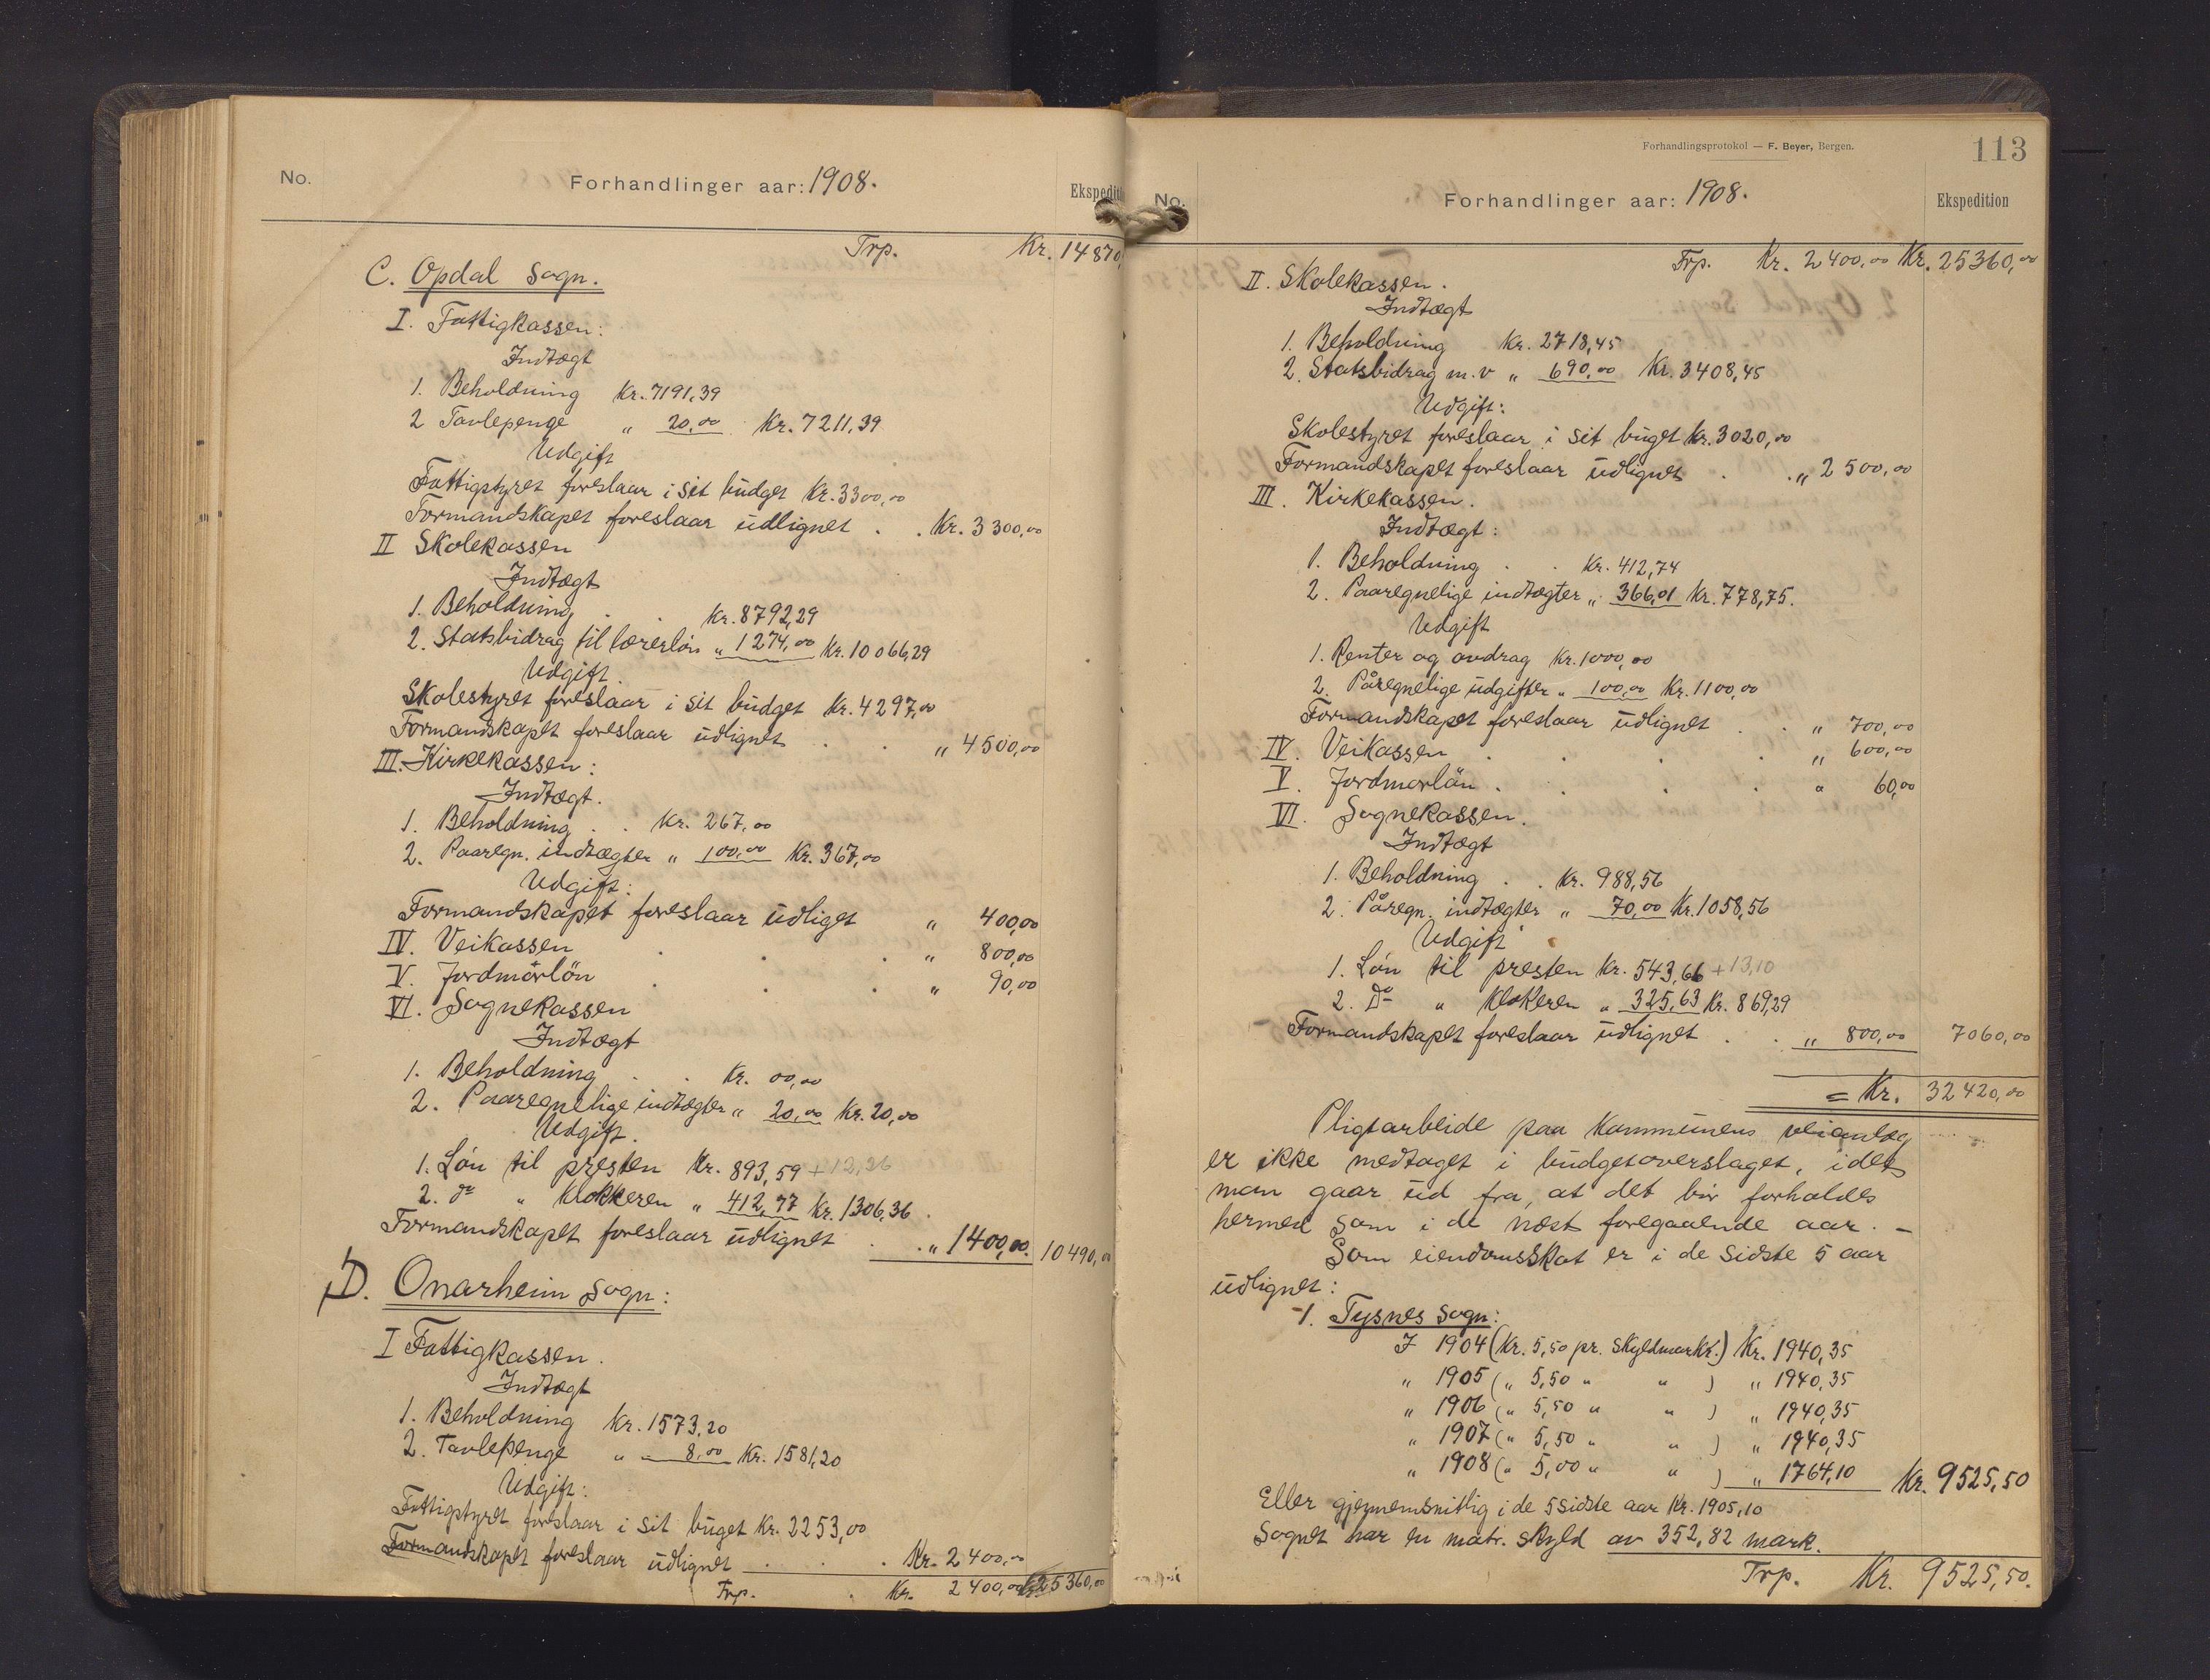 No.
Forhandlinger aar: 1908.
Ekspedit
Trp. Kr. 14870,
C. Opdal Sogn.
I. Fattigkassen:
Indtægt
1. Beholdning Kr. 7191,39
2 Tavlepenge " 20,00 Kr. 7211,39
Udgift
Fattigstyret foreslaar i sit budget Kr. 3300,00
Formandskapet foreslaar udlignet . . Kr. 3300,00
II Skolekassen
Indtægt
1. Beholdning . . Kr. 8792,29
2. Statsbidrag til lærerløn " 1274,00 Kr. 10066,29
Udgift.
Skolestyret foreslaar i sit budget Kr. 4297,00
Formandskapet foreslaar udlignet . . " 4500,00
III. Kirkekassen:
Indtægt.
1. Beholdning . . Kr. 267,00
2. Paaregn. indtægter " 100,00 Kr. 367,00
Udgift:
Formandskapet foreslaar udliget " 400,00
IV. Veikassen . . . " 800,00
V. Jordmorløn . . . " 90,00
VI. Sognekassen
Indtægt
1. Beholdning . . Kr. 00,00
2. Paaregnelige indtægter " 20,00 Kr. 20,00
Udgift.
1. Løn til presten Kr. 893,59 + 12,26
2. do " klokkeren " 412,77 Kr. 1306,36.
Formandskapet foreslaar udlignet . . " 1400,00. 10490,00
D. Onarheim sogn:
I Fattigkassen.
Indtægt
1. Beholdning Kr. 1573,20
2. Tavlepenge " 8,00 Kr. 1581,20
Udgift:
Fattigstyret foreslaar i sit buget Kr. 2253,00
Formandskapet foreslaar udlignet . . . Kr. 2400,00
Trp. . Kr. 2400,00 25360,00
Forhandlingsprotokol — F. Beyer, Bergen.
113
No.
Forhandlinger aar: 1908.
Ekspedition
Trp. Kr. 2400,00 Kr. 25360,00
II. Skolekassen.
Indtægt
1. Beholdning Kr. 2718,45
2. Statsbidrag m.v " 690,00 Kr. 3408,45
Udgift:
Skolestyret foreslaar i sit buget Kr. 3020,00
Formandskapet foreslaar udlignet . . " 2500,00
III. Kirkekassen.
Indtægt:
1. Beholdning . . Kr. 412,74
2. Paaregnelige indtægter " 366,01 Kr. 778,75.
Udgift
1. Renter og avdrag Kr. 1000,00
2. Påregnelige udgifter " 100,00 Kr. 1100,00
Formandskapet foreslaar udlignet . . " 700,00
IV. Veikassen . . . . " 600,00
V. Jordmorløn . . . . " 60,00
VI. Sognekassen.
Indtægt
1. Beholdning . . Kr. 988,56
2. Påregn. indtægter " 70,00 Kr. 1058,56
Udgift
1. Løn til presten Kr. 543,66 + 13,10
2. do " klokkeren " 325,63 Kr. 869,29
Formandskapet foreslaar udlignet . . " 800,00 7060,00
= Kr. 32420,00
Pligtarbeide paa kommunens veianlæg
er ikke medtaget i budgetoverslaget, idet
man gaar ud fra, at det bør forholdes
hermed som i de næst foregaaende aar. –
Som eiendomsskat er i de sidste 5 aar
udlignet:
1. Tysnes sogn:
I 1904 (Kr. 5,50 pr. Skyldmark.) Kr. 1940,35
" 1905 (" 5,50 " " ) " 1940,35
" 1906 (" 5,50 " " ) " 1940,35
" 1907 (" 5,50 " " ) " 1940,35
" 1908 (" 5,00 " " ) " 1764,10 Kr. 9525,50
Eller gjennemsnitlig i de 5 sidste aar Kr. 1905,10
Sognet har en matr. skyld av 352,82 mark.
Trp. Kr. 9525,50.